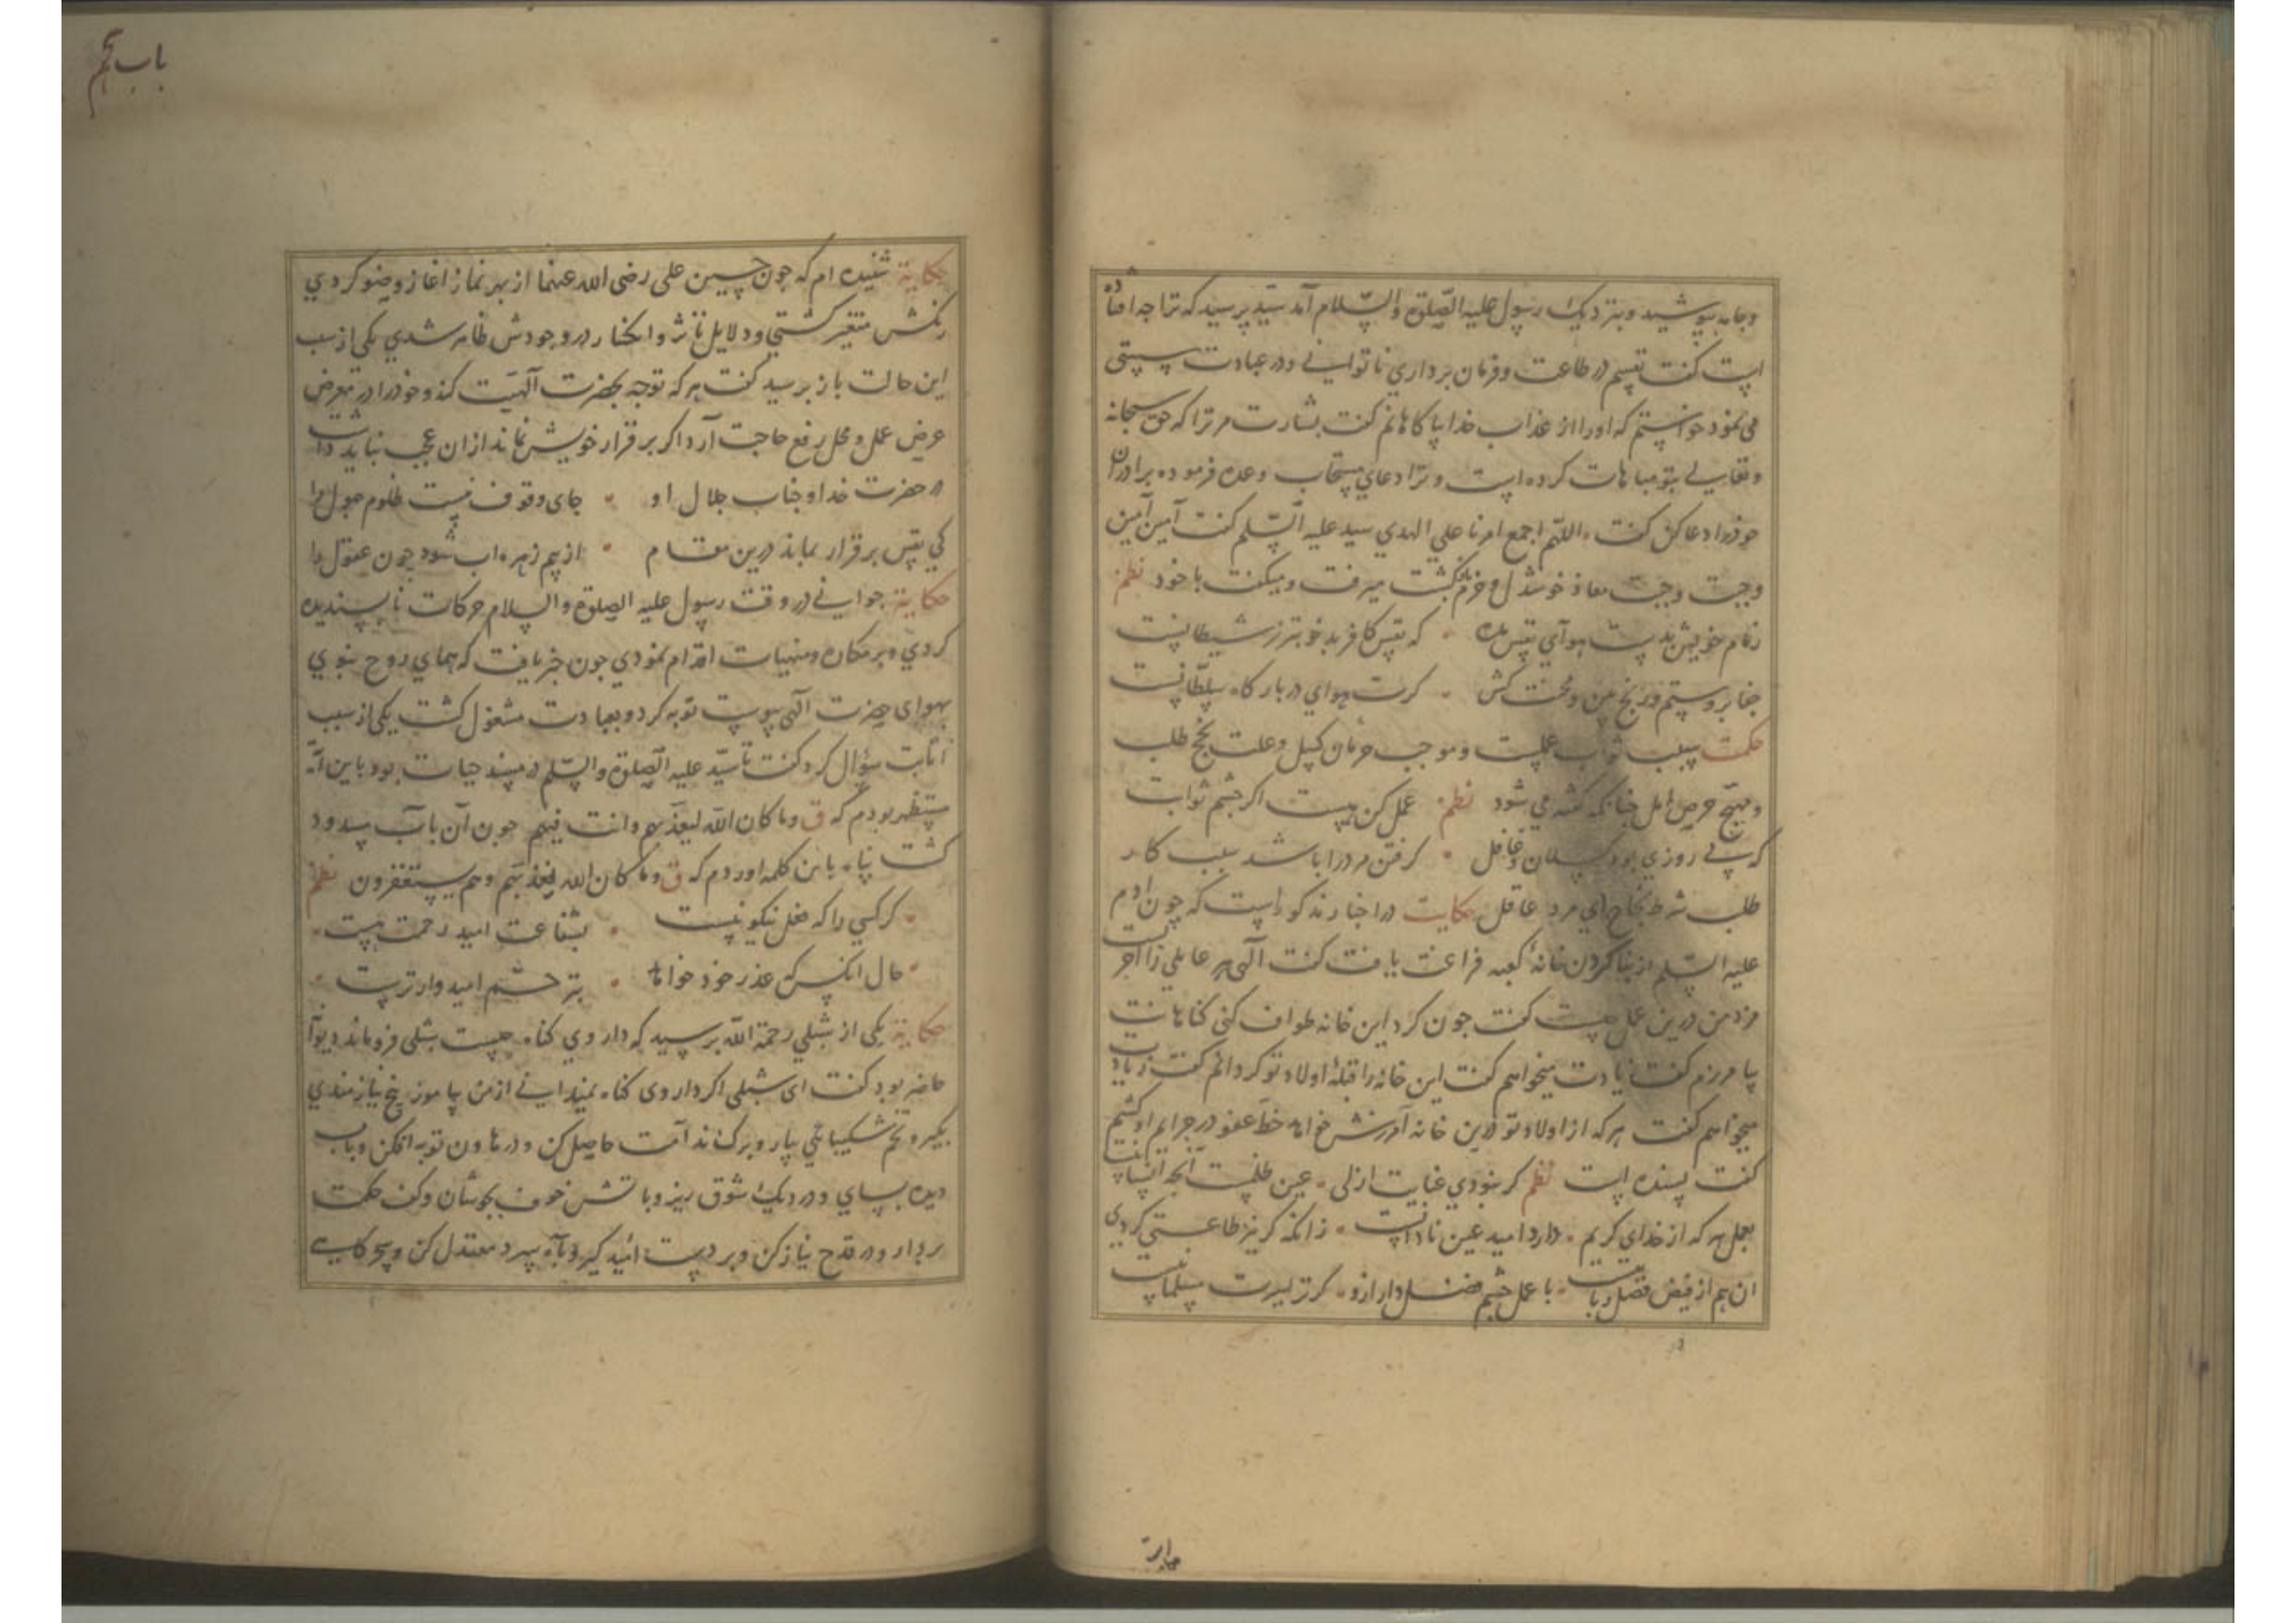 وجامه بپوشید وبنزدیک رسول علیه الصلوة والسلام آمد سید پرسید که ترا جه افتاده
است کفت نفسم در طاعت وفرمان برداری ناتوانی ودر عبادت سستی
می نمود خواستم که اورا از عذاب خدا باکاهانم کفت بشارت مر ترا که حق سبحانه
وتعالی بتو مباهات کرده است وترا دعای مستجاب وعده فرموده برادران
خودرا دعا کن کفت اللهم اجمع امرنا علی الهدی سید علیه السلم کفت آمین آمین
وجبت وجبت معاذ خوشدل وخرم بازکشت میرفت ومیکفت با خود نظم
زمام خویش بدست هوآی نفس مده که نفس کافر بدخو بتر ز شیطانست
جفا بر وستم ورنج بین ومحنت کش کرت هوای دربار کاه سلطانست
حکمت سبب ثواب عملست وموجب حرمان کسل وعلت نجح طلب
ومهیج حرص امل جنانکه کفته می شود نظم عمل کن هست اکر جشم ثوابت
که بی روزی بود کسلان وغافل کرفتن مر درا باشد سبب کار
طلب شرط نجاح ای مرد عاقل حکایت در اخبار مذکور است که چون ادم
علیه السلم از بنا کردن خانهٔ کعبه فراغت یافت کفت الهی هر عاملی را اجریست
مزد من درین عمل جیست کفت جون کرد این خانه طواف کنی کناهانت
بیامرزم کفت زیادت میخواهم کفت این خانه را قبلهٔ اولاد تو کردانم کفت زیادت
میخواهم کفت هرکه از اولاد تو درین خانه آمرزش خواهد خط عفو در جرایم او کشم
کفت بسنده است نظم کر نبودی عنایت ازلی عین ظلمست آنجه انسانیست
بعمل هر که از خدای کریم دارد امید عین نادانیست زانکه کر نیز طاعتی کردی
ان هم از فیض فضل ربانیست با عمل جشم فضل دار ازو کر ترا سیرت مسلمانیست
باب نهم
حکایة شنیده ام که جون حسین علی رضی الله عنهما از بهر نماز اغاز وضو کردی
رنکش متغیر کشتی ودلایل تاثر وانکسار در وجودش ظاهر شدی یکی از سبب
این حالت باز پرسید کفت هر که توجه بحضرت آلهیت کند وخودرا در معرض
عرض عمل ومحل رفع حاجت آرد اکر بر قرار خویش نماند ازان عجب نباید داشت
در حضرت خدا وجناب جلال او جای وقوف نیست ظلوم جهول را
کی نفس بر قرار بماند درین مقام از بیم زهره اب شود جون عقول را
حکایة جوانی در وقت رسول علیه الصلوة والسلام حرکات ناپسندیده
کردی وبر مکاره ومنهیات اقدام نمودی جون خبر یافت که همای روح نبوی
بهوای حضرت آلهی پیوست توبه کرد وبعبادت مشغول کشت یکی از سبب
انابت سؤال کرد کفت تا سید علیه الصلوة والسلم در مسند حیات بود باین آیة
مستظهر بودم که ق وما کان الله لیعذبهم وانت فیهم جون آن باب مسدود
کشت پناه باین کلمه اوردم که ق وما کان الله لیعذبهم وهم یستغفرون نظم
کر کسی را که فعل نیکو نیست بشفاعت امید رحمت هست
حال انکس که عذر خود خواهد بترحم امیدوارترست
حکایة یکی از شبلی رحمة الله پرسید که داروی کناه جیست شبلی فروماند دیوانه
حاضر بود کفت ای شبلی اکر داروی کناه نمیدانی از من بیاموز بیخ نیازمندی
بکیر وتخم شکیبائی بیار وبرک ندامت حاصل کن ودر هاون توبه افکن وبآب
دیده بسای ودر دیک شوق ریز وباتش خوف بجوشان وکف حکمت
بردار ودر قدح نیاز کن وبر دست امید کیر وبآه سرد معتدل کن وسحرکاهی